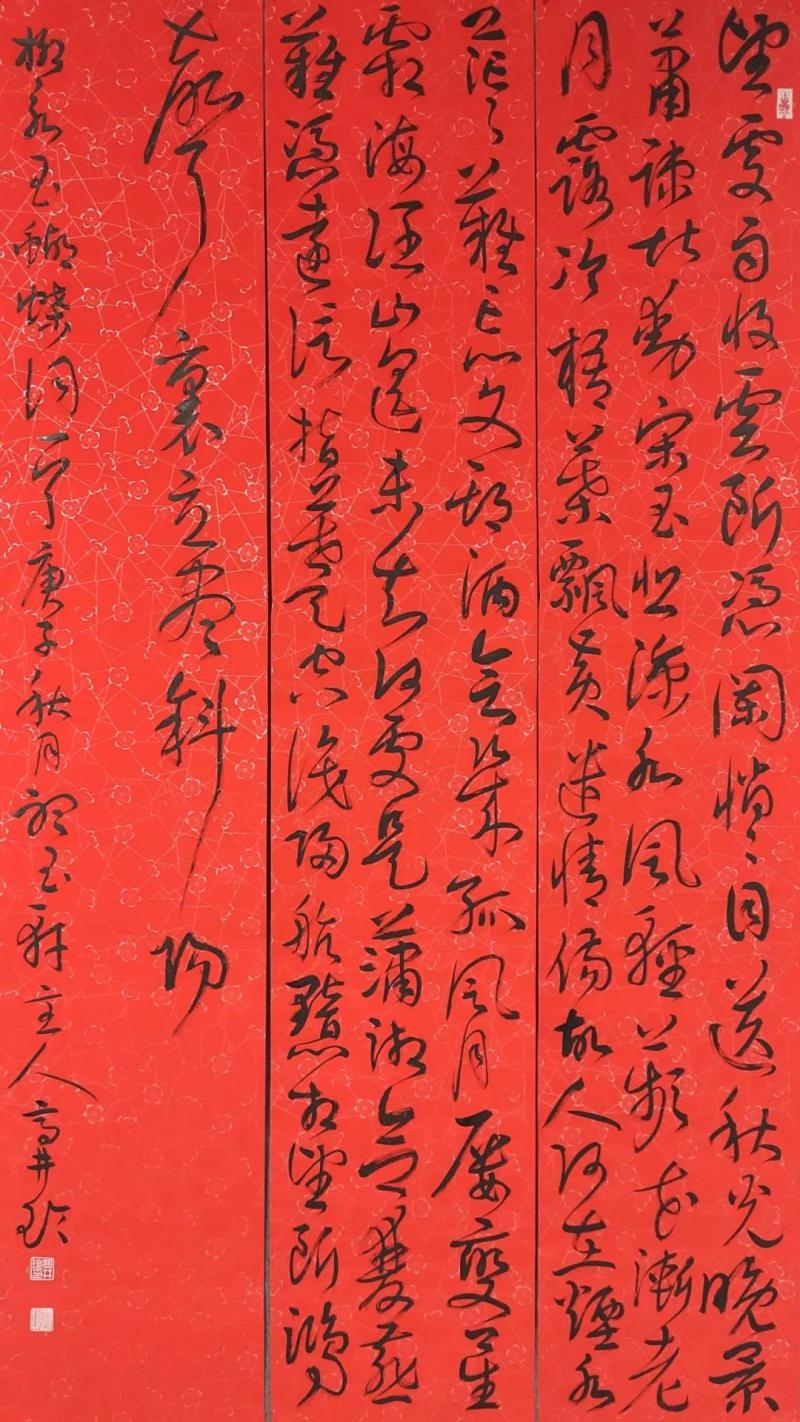 望處雨收雲斷憑闌悄々目送秋光晚景
蕭疎堪動宋玉悲涼水風輕蘋花漸老
月露冷梧葉飄黃遣情傷故人何在煙水
茫々難忘文期酒會幾孤風月屢變星
霜海闊山遙未知何處是瀟湘念雙燕
難憑遠信指暮天空識歸航黯相望斷鴻
聲裏立盡斜陽
柳永玉蝴蝶詞一首庚子秋月玉軒主人高井